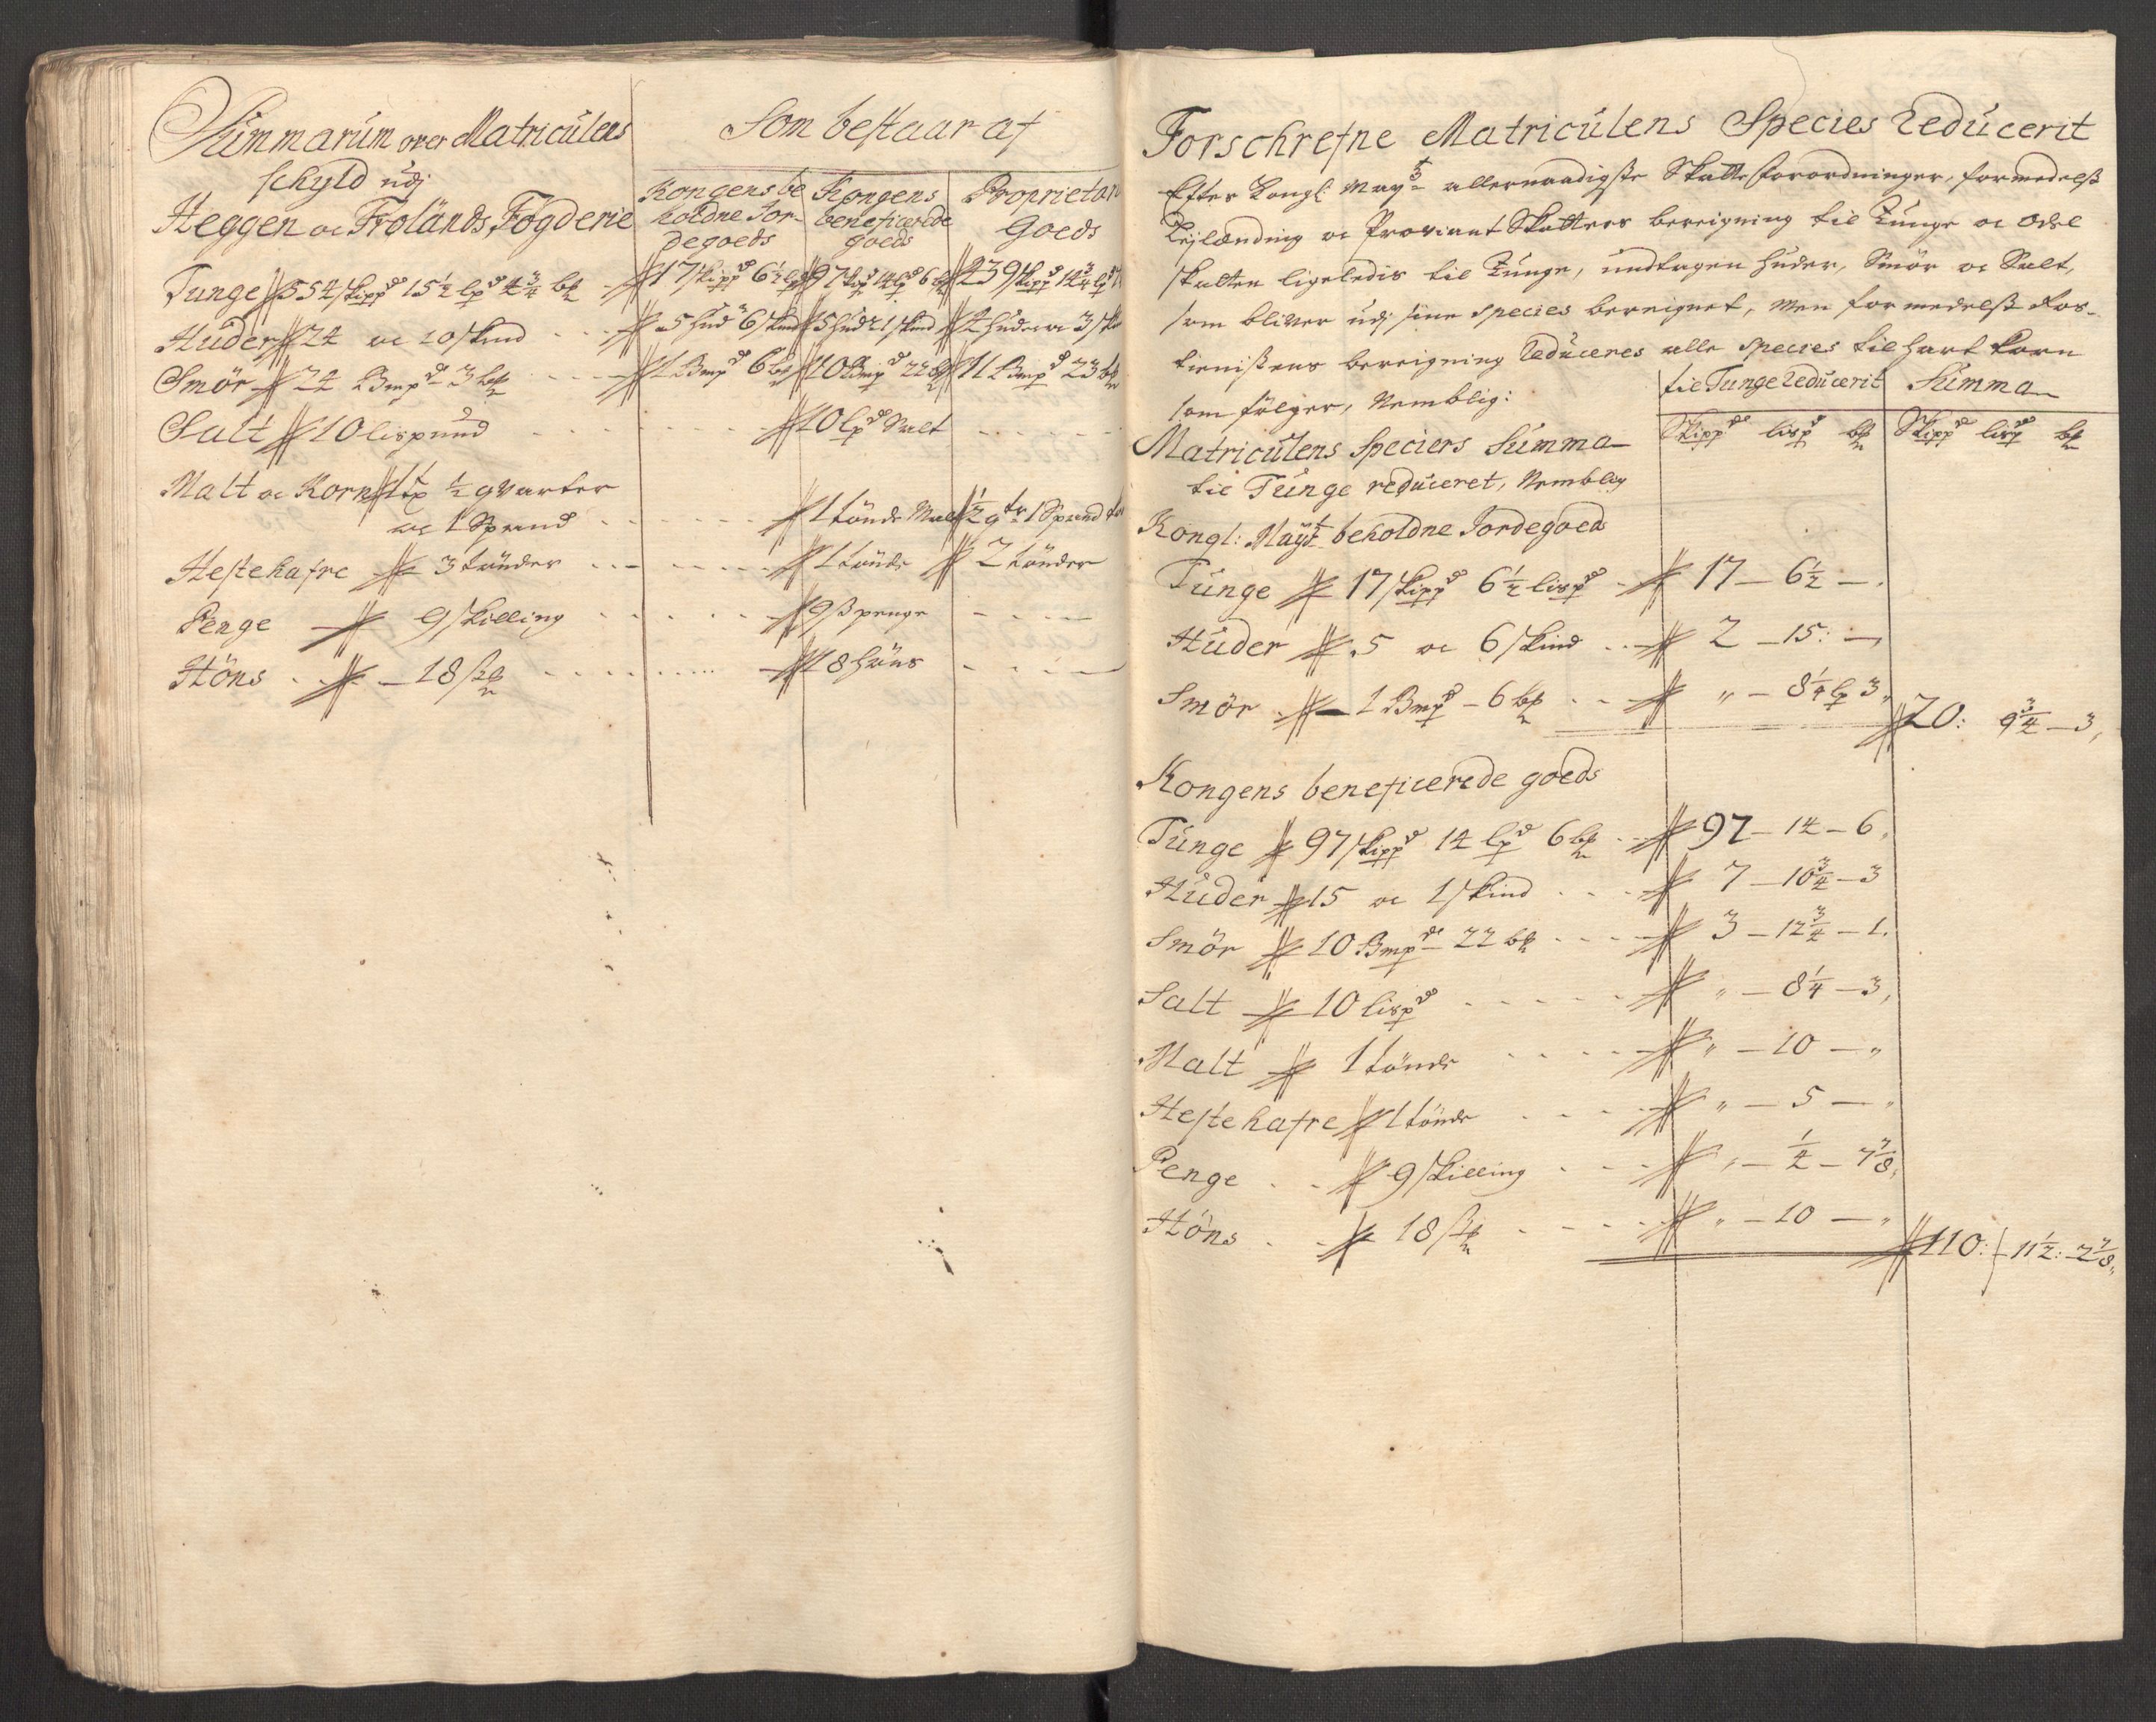 Summarum over Matriculens
schyld udj
Heggen oc Frolands Fogderie
Som bestaar af
Kongens be
holdne Jor-
degoeds
Kongens
beneficerede
goeds
Proprietar
Goeds
Tunge 554 skippd 15½ lpd 4¾ bpl 17 skippd 6½ lpd 97 skippd 14 lpd 6 bpl 439 skippd 14¾ lpd
Huder 24 oc 10 skind 5 hud 6 skind 15 hud 1 skind 2 huder oc 3 sk
Smör 24 Bmpd 3 bpl 1 Bmpd 6 bpl 10 Bmpd 22 bpl 11 Bmpd 23 bpl
Salt 10 lispund 10 lpd Salt
Malt oc Korn ½ qvarter
oc 1 Spand 1 tönde Malt ½ qtr 1 Spand
Hestehafre 3 tönder 1 tönde 2 tönder
Penge 9 skilling 9 ß penge
Höns 18 stk 18 höns
Forschrefne Matriculens Species Reducerit
Efter Kongl: Mayts allernaadigste Skatte forordninger, formedelst
Leylænding oc Proviant Skatters bereigning til Tunge oc Odel
skatten ligeledis til Tunge, undtagen huder, Smör oc Salt,
som bliver udj sine Species bereignet, Men formedelst Ros-
tienistens bereigning Reduceres alle Species til hart korn
som fölger, Nemblig:
til Tunge Reducerit Summa
Matriculens Speciers Summa Skippd lispd bpl Skippd lispd bpl
til Tunge reduceret, Nemblig
Kongl: Mayts beholdne Jordegoeds
Tunge 17 skippd 6½ lispd 17 - 6½ -
Huder 5 oc 6 skind 2 - 15: -
Smör 1 Bmpd - 6 bpl " - 8¼ lp 3 "
20: 9¾ - 3,
Kongens beneficerede goeds
Tunge 97 skippd 14 lpd 6 bpl 97 - 14 - 6.
Huder 15 oc 1 skind 7 - 10¾ - 3
Smör 10 Bmpd 22 bpl 3 - 12¾ - 1.
Salt 10 lispd " - 8¼ - 3,
Malt 1 tönde " - 10 - "
Hestehafre 1 tönde " - 5 - "
Penge 9 skilling " - ¼ - 7⅞,
Höns 18 stk " - 10 - "
110: 11½: 2⅞,